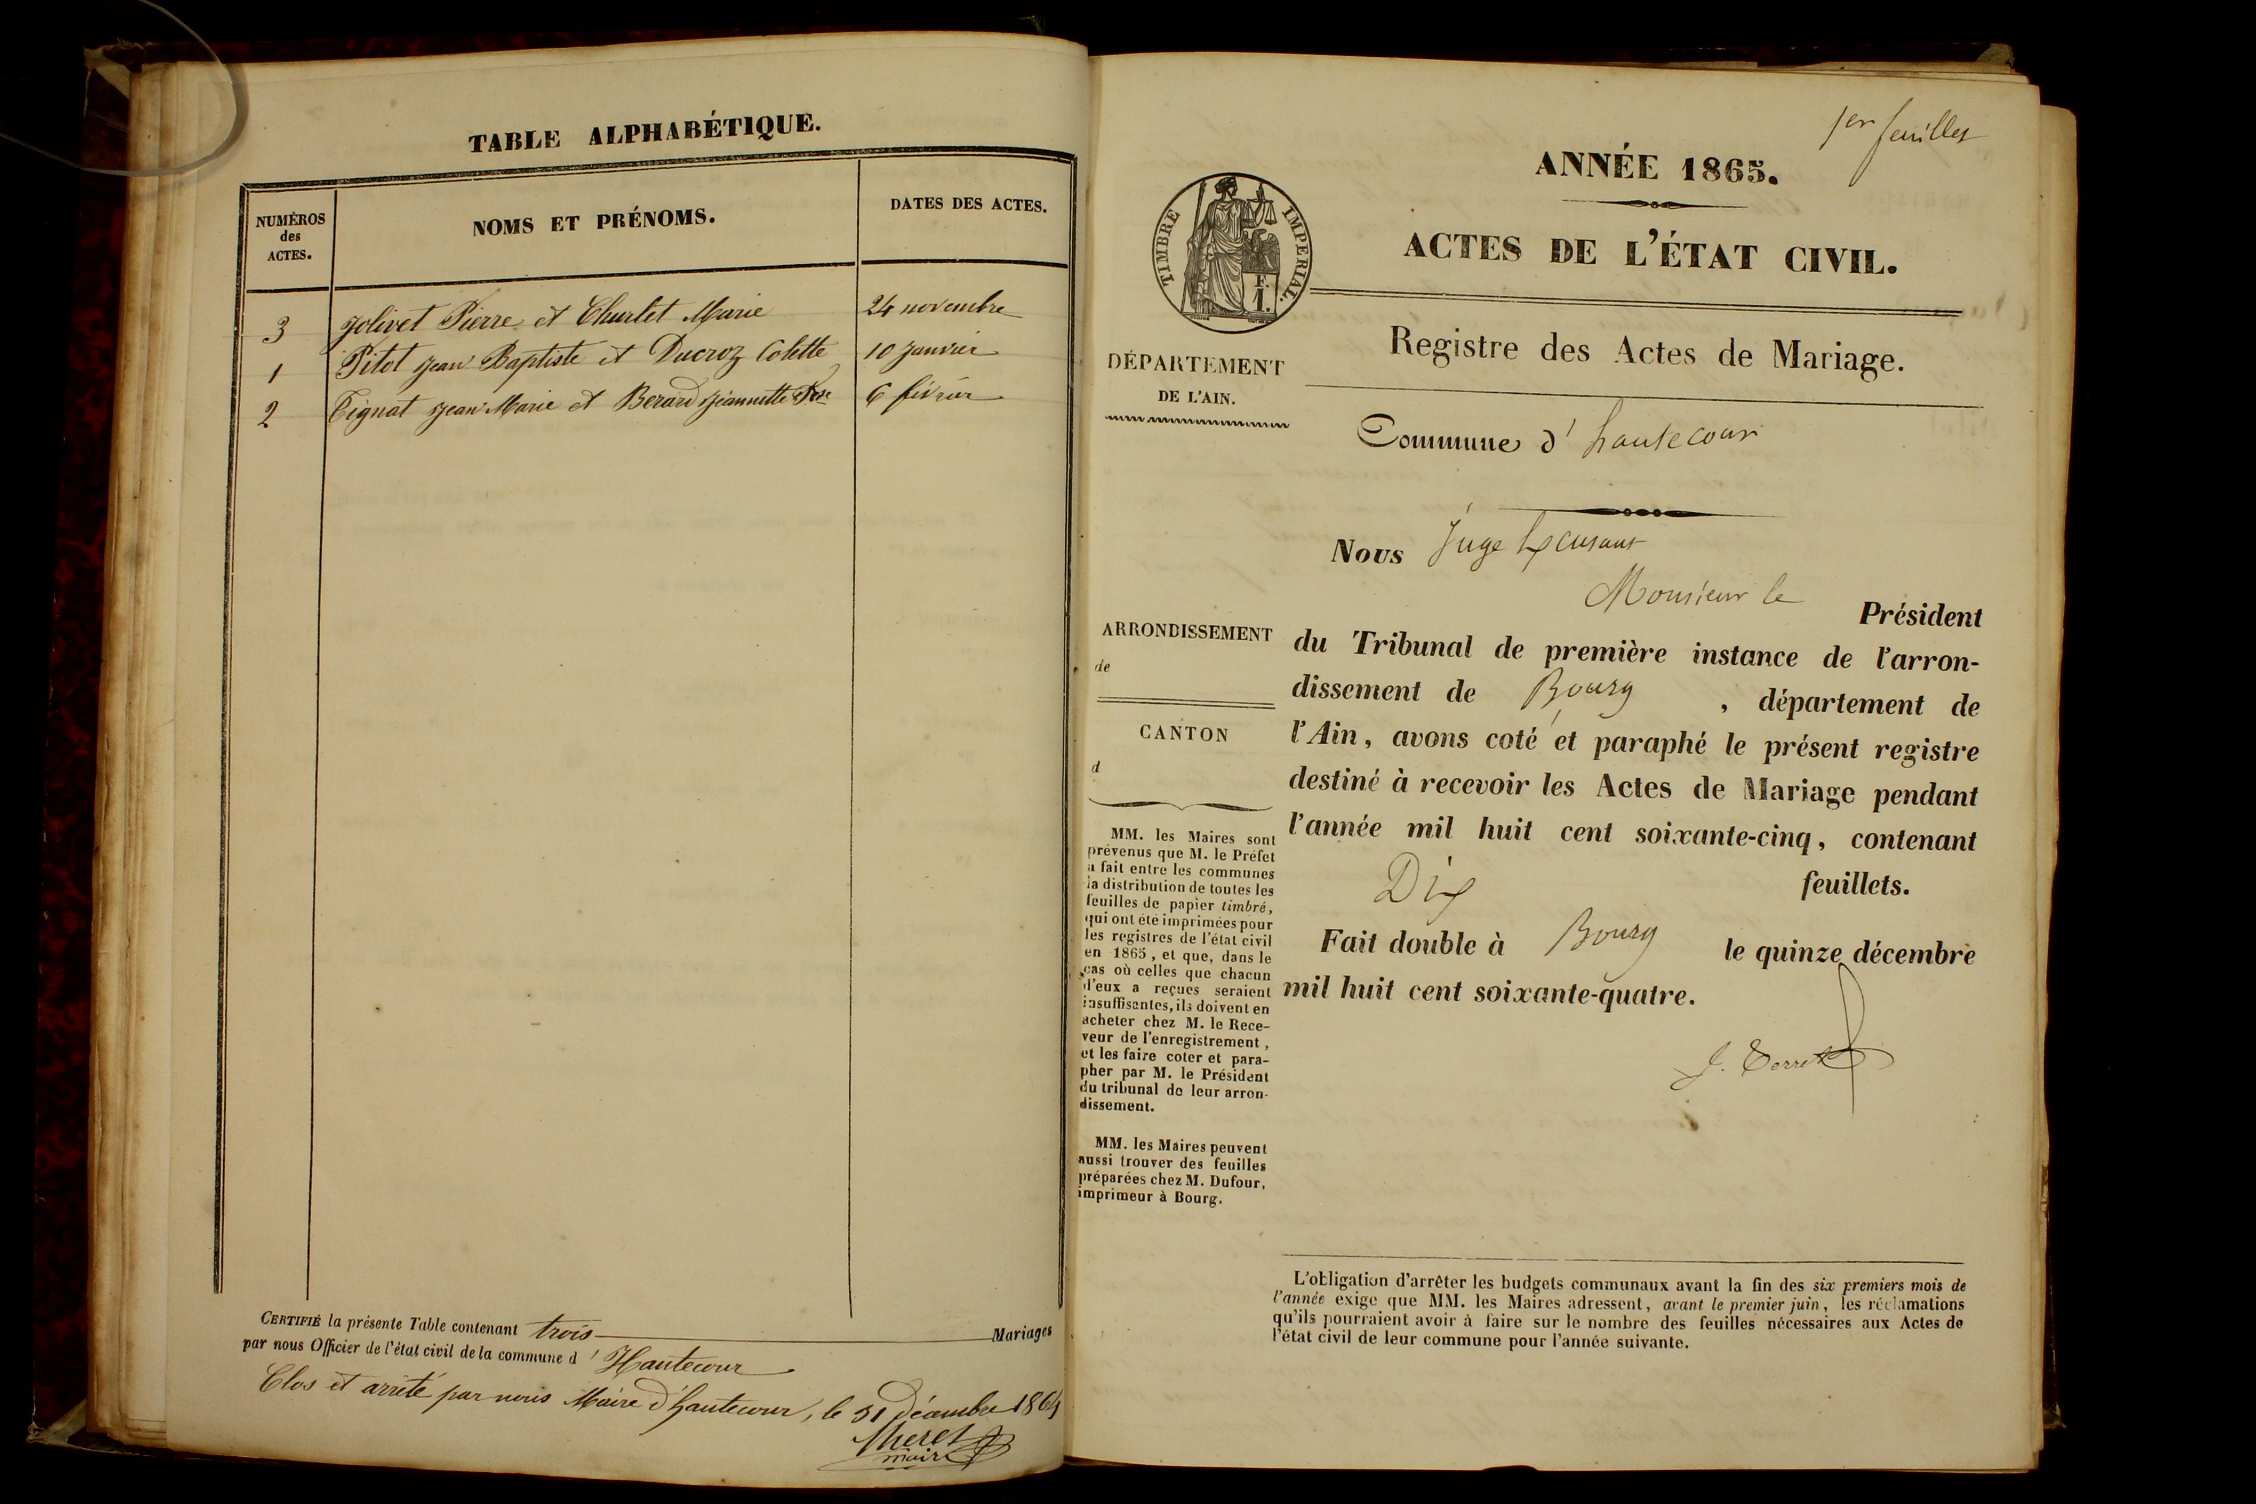 TABLE ALPHABÉTIQUE.
NUMÉROS
des
ACTES.
NOMS ET PRÉNOMS.
DATES DES ACTES.
3 Jolivet Pierre et Churlet Marie 24 novembre
1 Pitot Jean Baptiste et Ducroz Colette 10 Janvier
2 Tignat Jean Marie et Berard Jeannette 6 février
CERTIFIÉ la présente Table contenant trois Mariages
par nous Officier de l'état civil de la commune d' Hautecour
Clos et arrêté par nous Maire d'hautecour, le 31 Décembre 1864
maire
1er feuillet
ANNÉE 1865.
ACTES DE L'ÉTAT CIVIL.
TIMBRE IMPERIAL.
F.
1.
Registre des Actes de Mariage.
DÉPARTEMENT
DE L'AIN.
Commune d' hautecour
Nous Juge
Monsieur le Président
du Tribunal de première instance de l'arron-
dissement de Bourg, département de
l'Ain, avons coté et paraphé le présent registre
destiné à recevoir les Actes de Mariage pendant
l'année mil huit cent soixante-cinq, contenant
Dix feuillets.
Fait double à Bourg le quinze décembre
mil huit cent soixante-quatre.
ARRONDISSEMENT
de
CANTON
d
MM. les Maires sont
prévenus que M. le Préfet
a fait entre les communes
la distribution de toutes les
feuilles de papier timbré,
qui ont été imprimées pour
les registres de l'état civil
en 1865, et que, dans le
cas où celles que chacun
d'eux a reçues seraient
insuffisantes, ils doivent en
acheter chez M. le Rece-
veur de l'enregistrement,
et les faire coter et para-
pher par M. le Président
du tribunal de leur arron-
dissement.
MM. les Maires peuvent
aussi trouver des feuilles
préparées chez M. Dufour,
imprimeur à Bourg.
L'obligation d'arrêter les budgets communaux avant la fin des six premiers mois de
l'année exige que MM. les Maires adressent, avant le premier juin, les réclamations
qu'ils pourraient avoir à faire sur le nombre des feuilles nécessaires aux Actes de
l'état civil de leur commune pour l'année suivante.